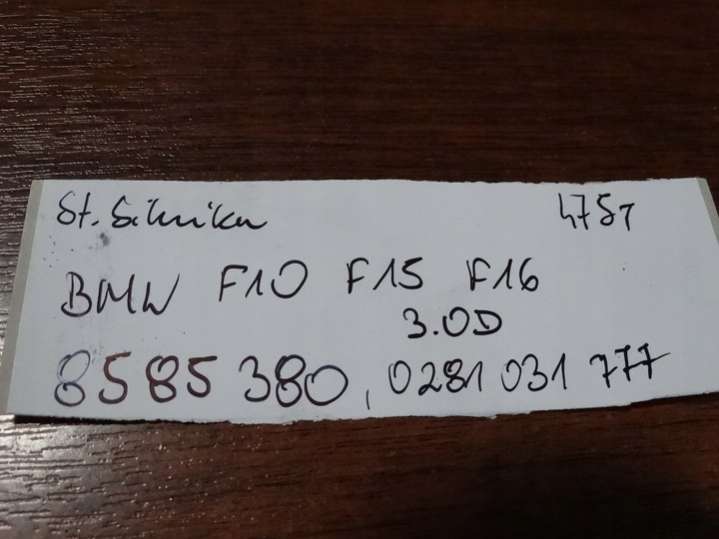 St. Silnika 475T
BMW F10 F15 F16
3.0D
8585 380, 0281 031 777